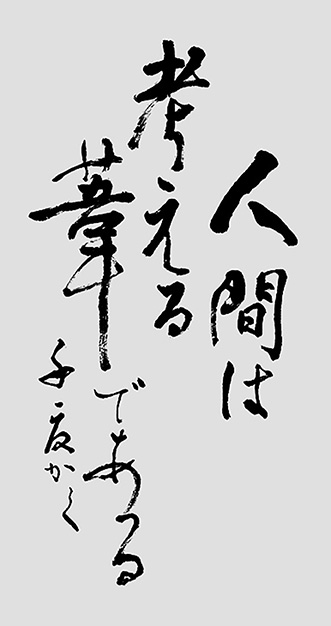 人間は
考える
葦である
千度かく